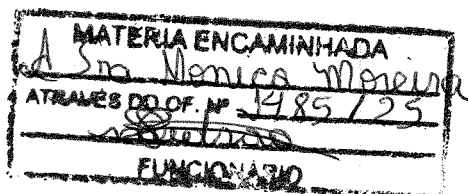 MATERIA ENCAMINHADA
A Sra Monica Moreira
ATRAVÉS DO OF. Nº 1485/25
FUNCIONARIO